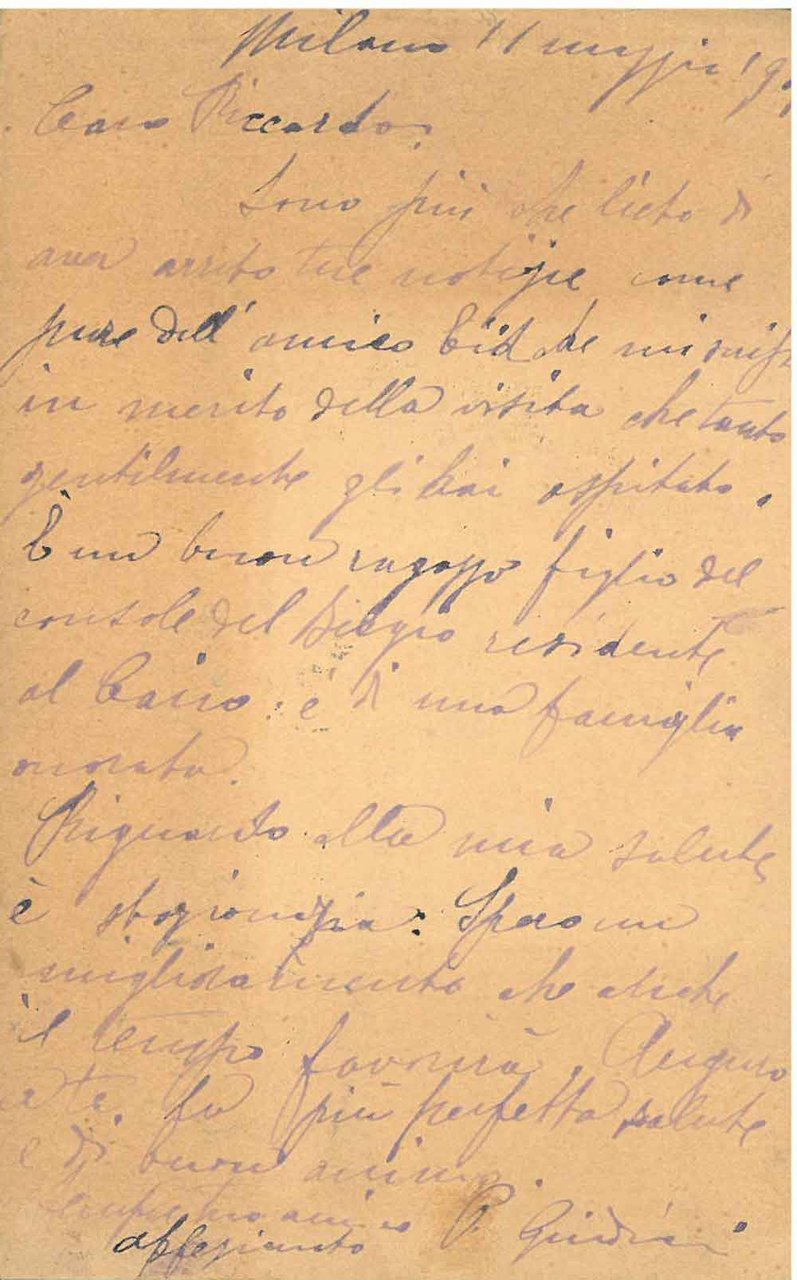 Milano 11 maggio 19
Caro Riccardo,
Sono più che lieto di
aver tue notizie come
pure dell'amico che mi
in merito della visita che tanto
gentilmente gli hai ospitato.
È un buon ragazzo figlio del
console del Belgio residente
al Cairo: è di una famiglia
onorata.
Riguardo alla mia salute
è : Spero un
miglioramento che anche
il tempo favorirà. Auguro
a te la più perfetta salute
e di buon animo.
amico
affezionato P.